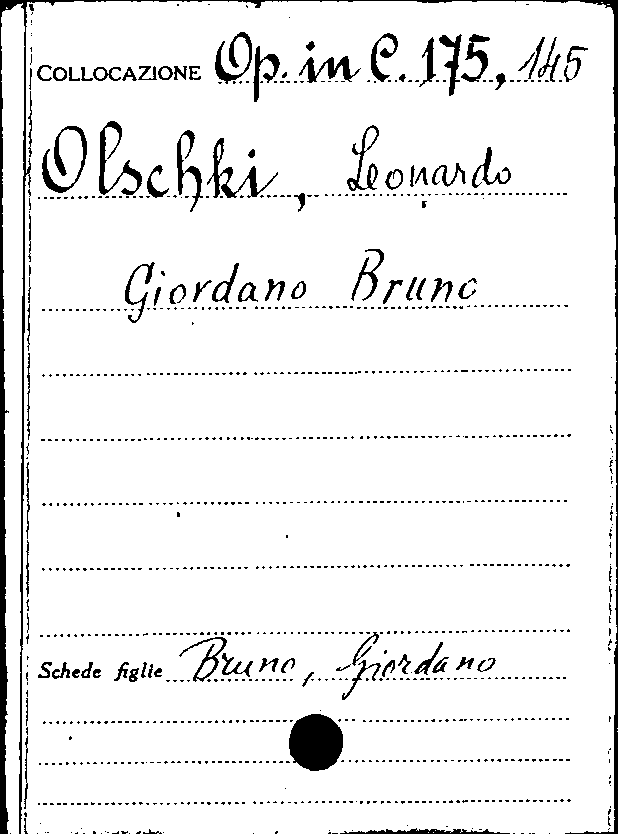 COLLOCAZIONE Op. in C. 175, 145
Olschki, Leonardo
Giordano Bruno
Schede figlie Bruno, Giordano